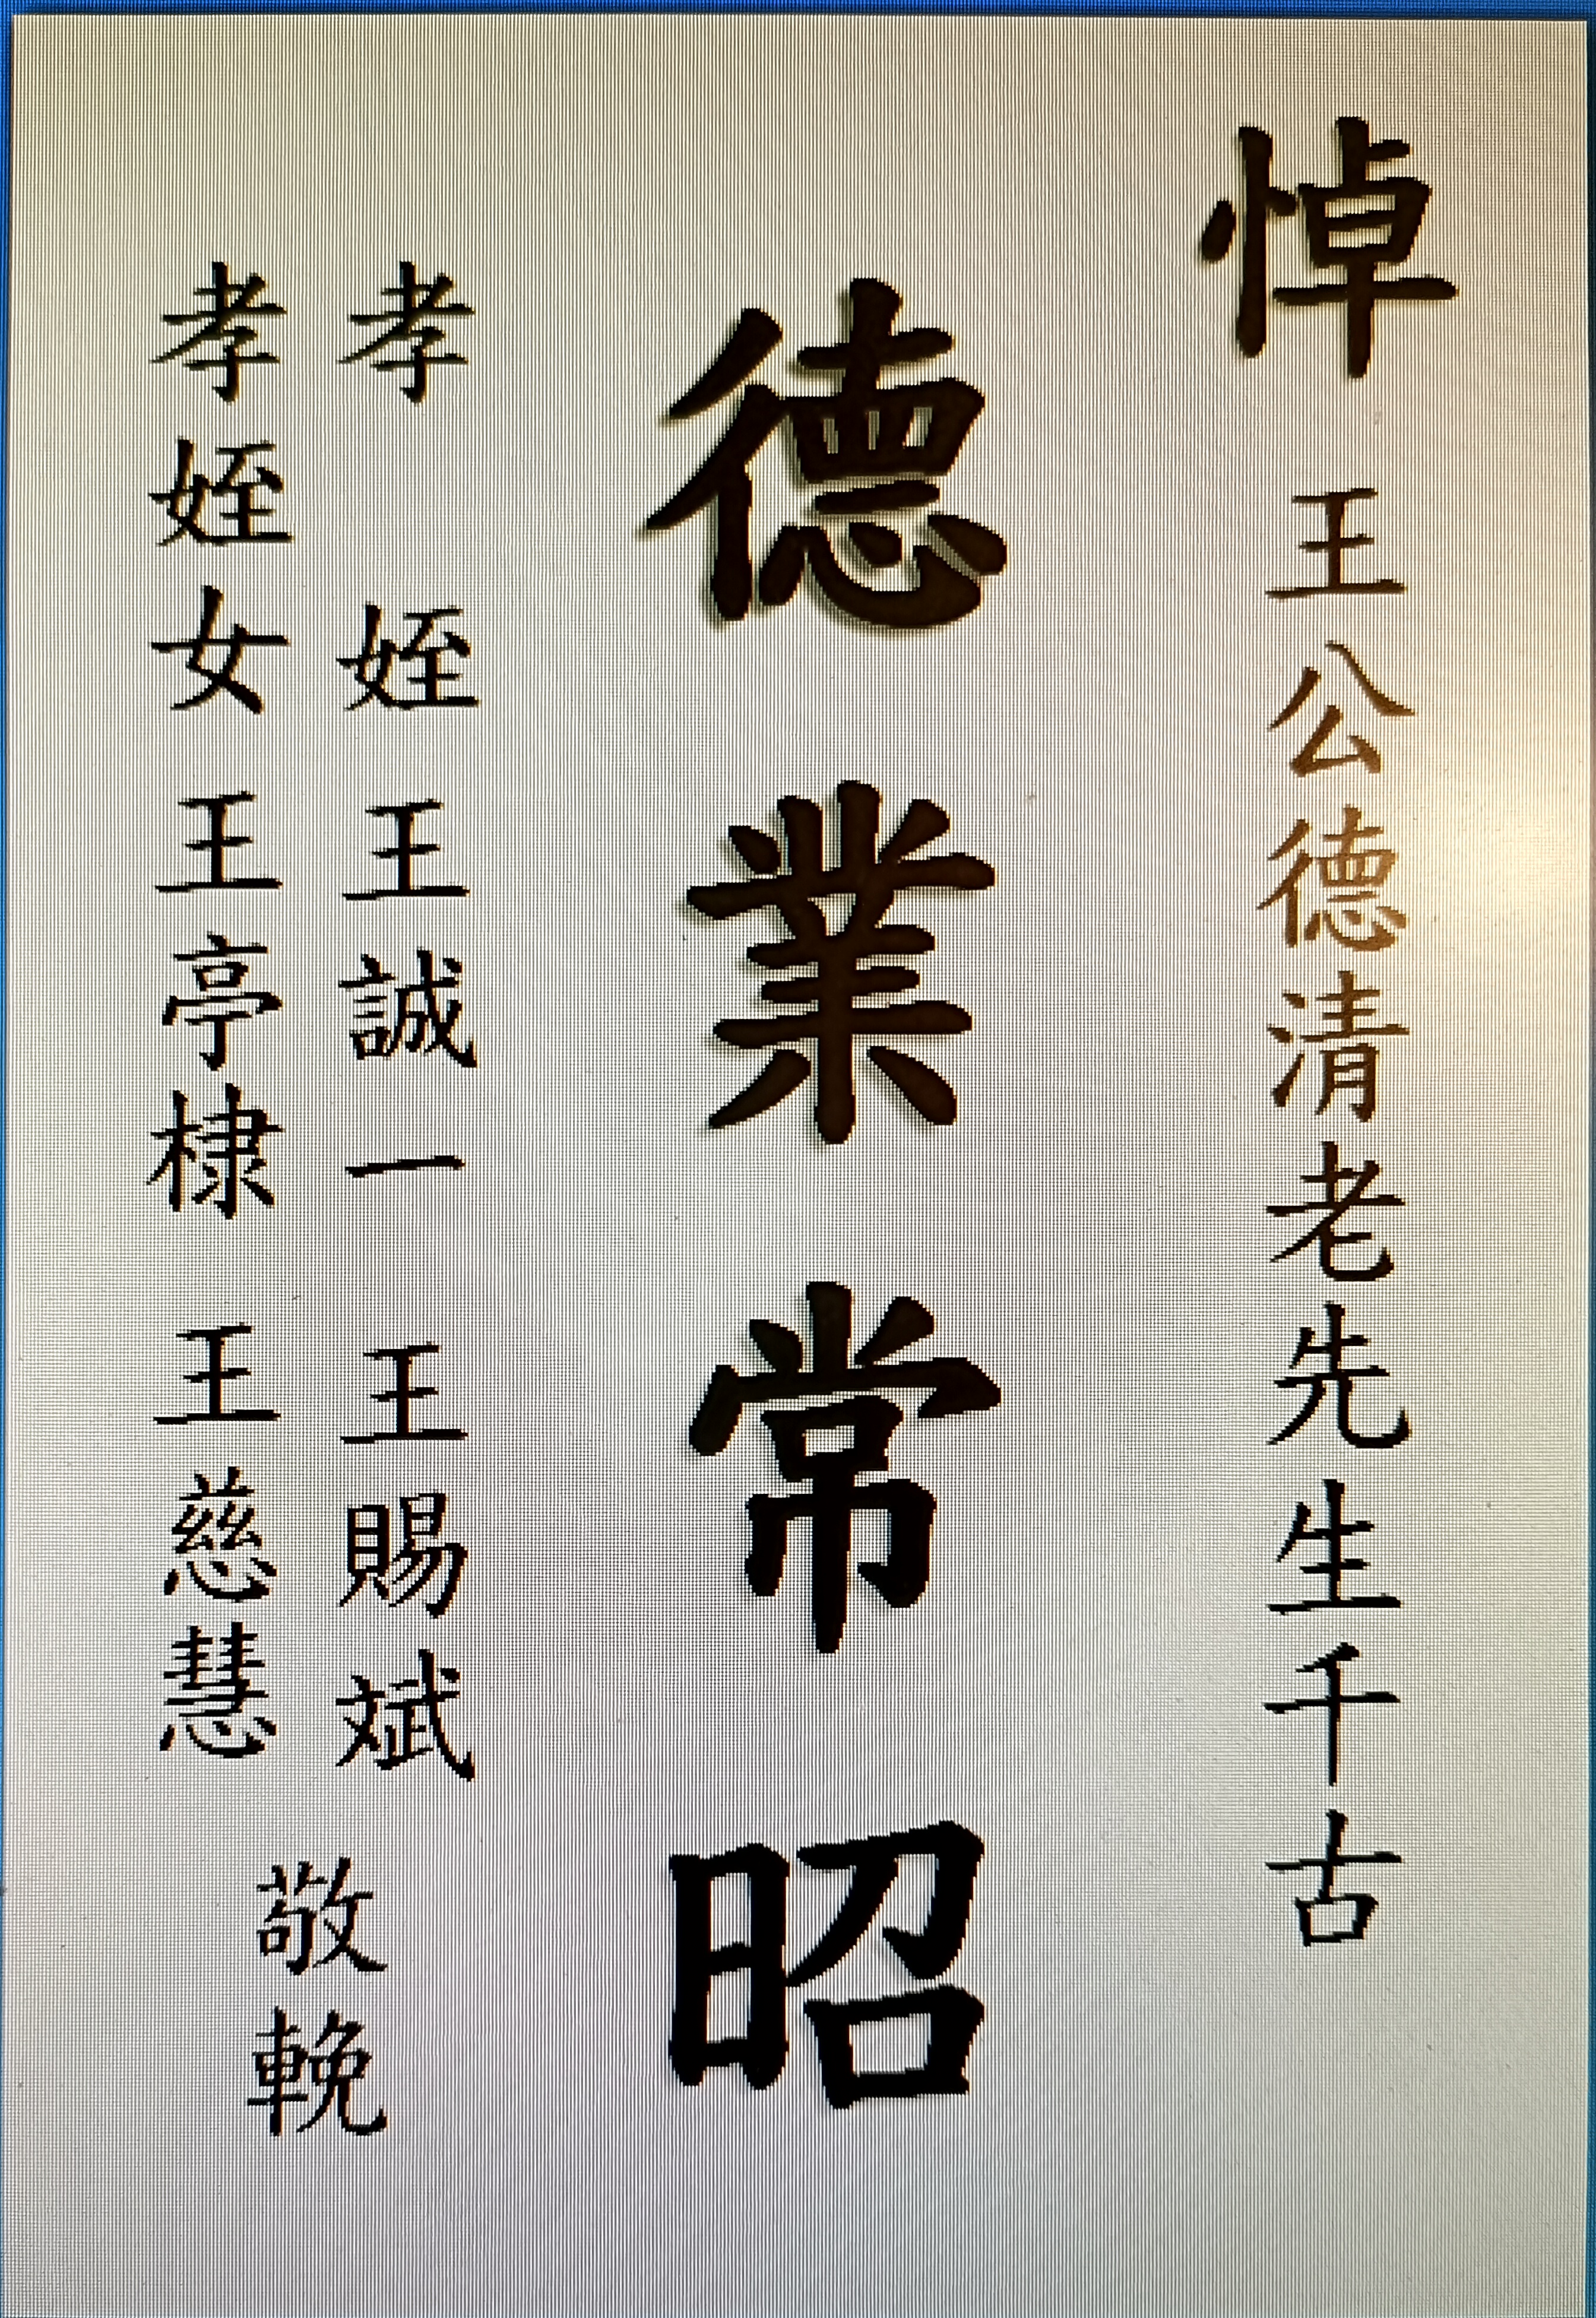 悼
王公德清老先生千古
德業常昭
孝 姪 王誠一 王賜斌
孝姪女 王亭棣 王慈慧
敬輓